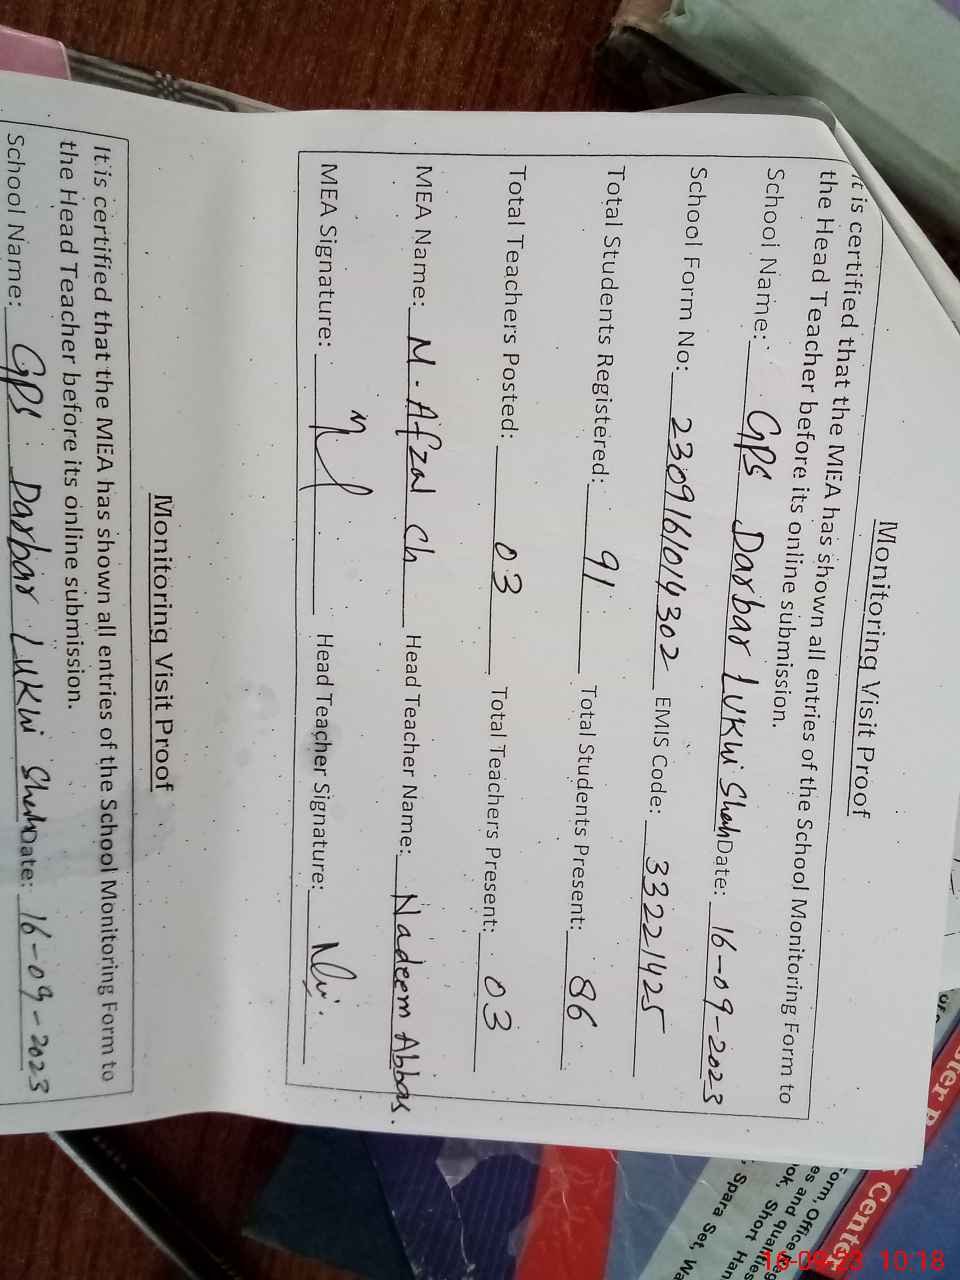 Monitoring Visit Proof
t is certified that the MEA has shown all entries of the School Monitoring Form to
the Head Teacher before its online submission.
School Name: GPS Darbar Lukhi Shah Date: 16-09-2023
School Form No: 2309161014302 EMIS Code: 33221425
Total Students Registered: 91 Total Students Present: 86
Total Teachers Posted: 03 Total Teachers Present: 03
MEA Name: M. Afzal Ch Head Teacher Name: Nadeem Abbas.
MEA Signature: Head Teacher Signature:
Monitoring Visit Proof
It is certified that the MEA has shown all entries of the School Monitoring Form to
the Head Teacher before its online submission.
School Name: GPS Darbar Lukhi Shah Date: 16-09-2023
Center
Form, Office
es and qualities
ok, Short Han
Spara Set, Wa
16-09-23 10:18